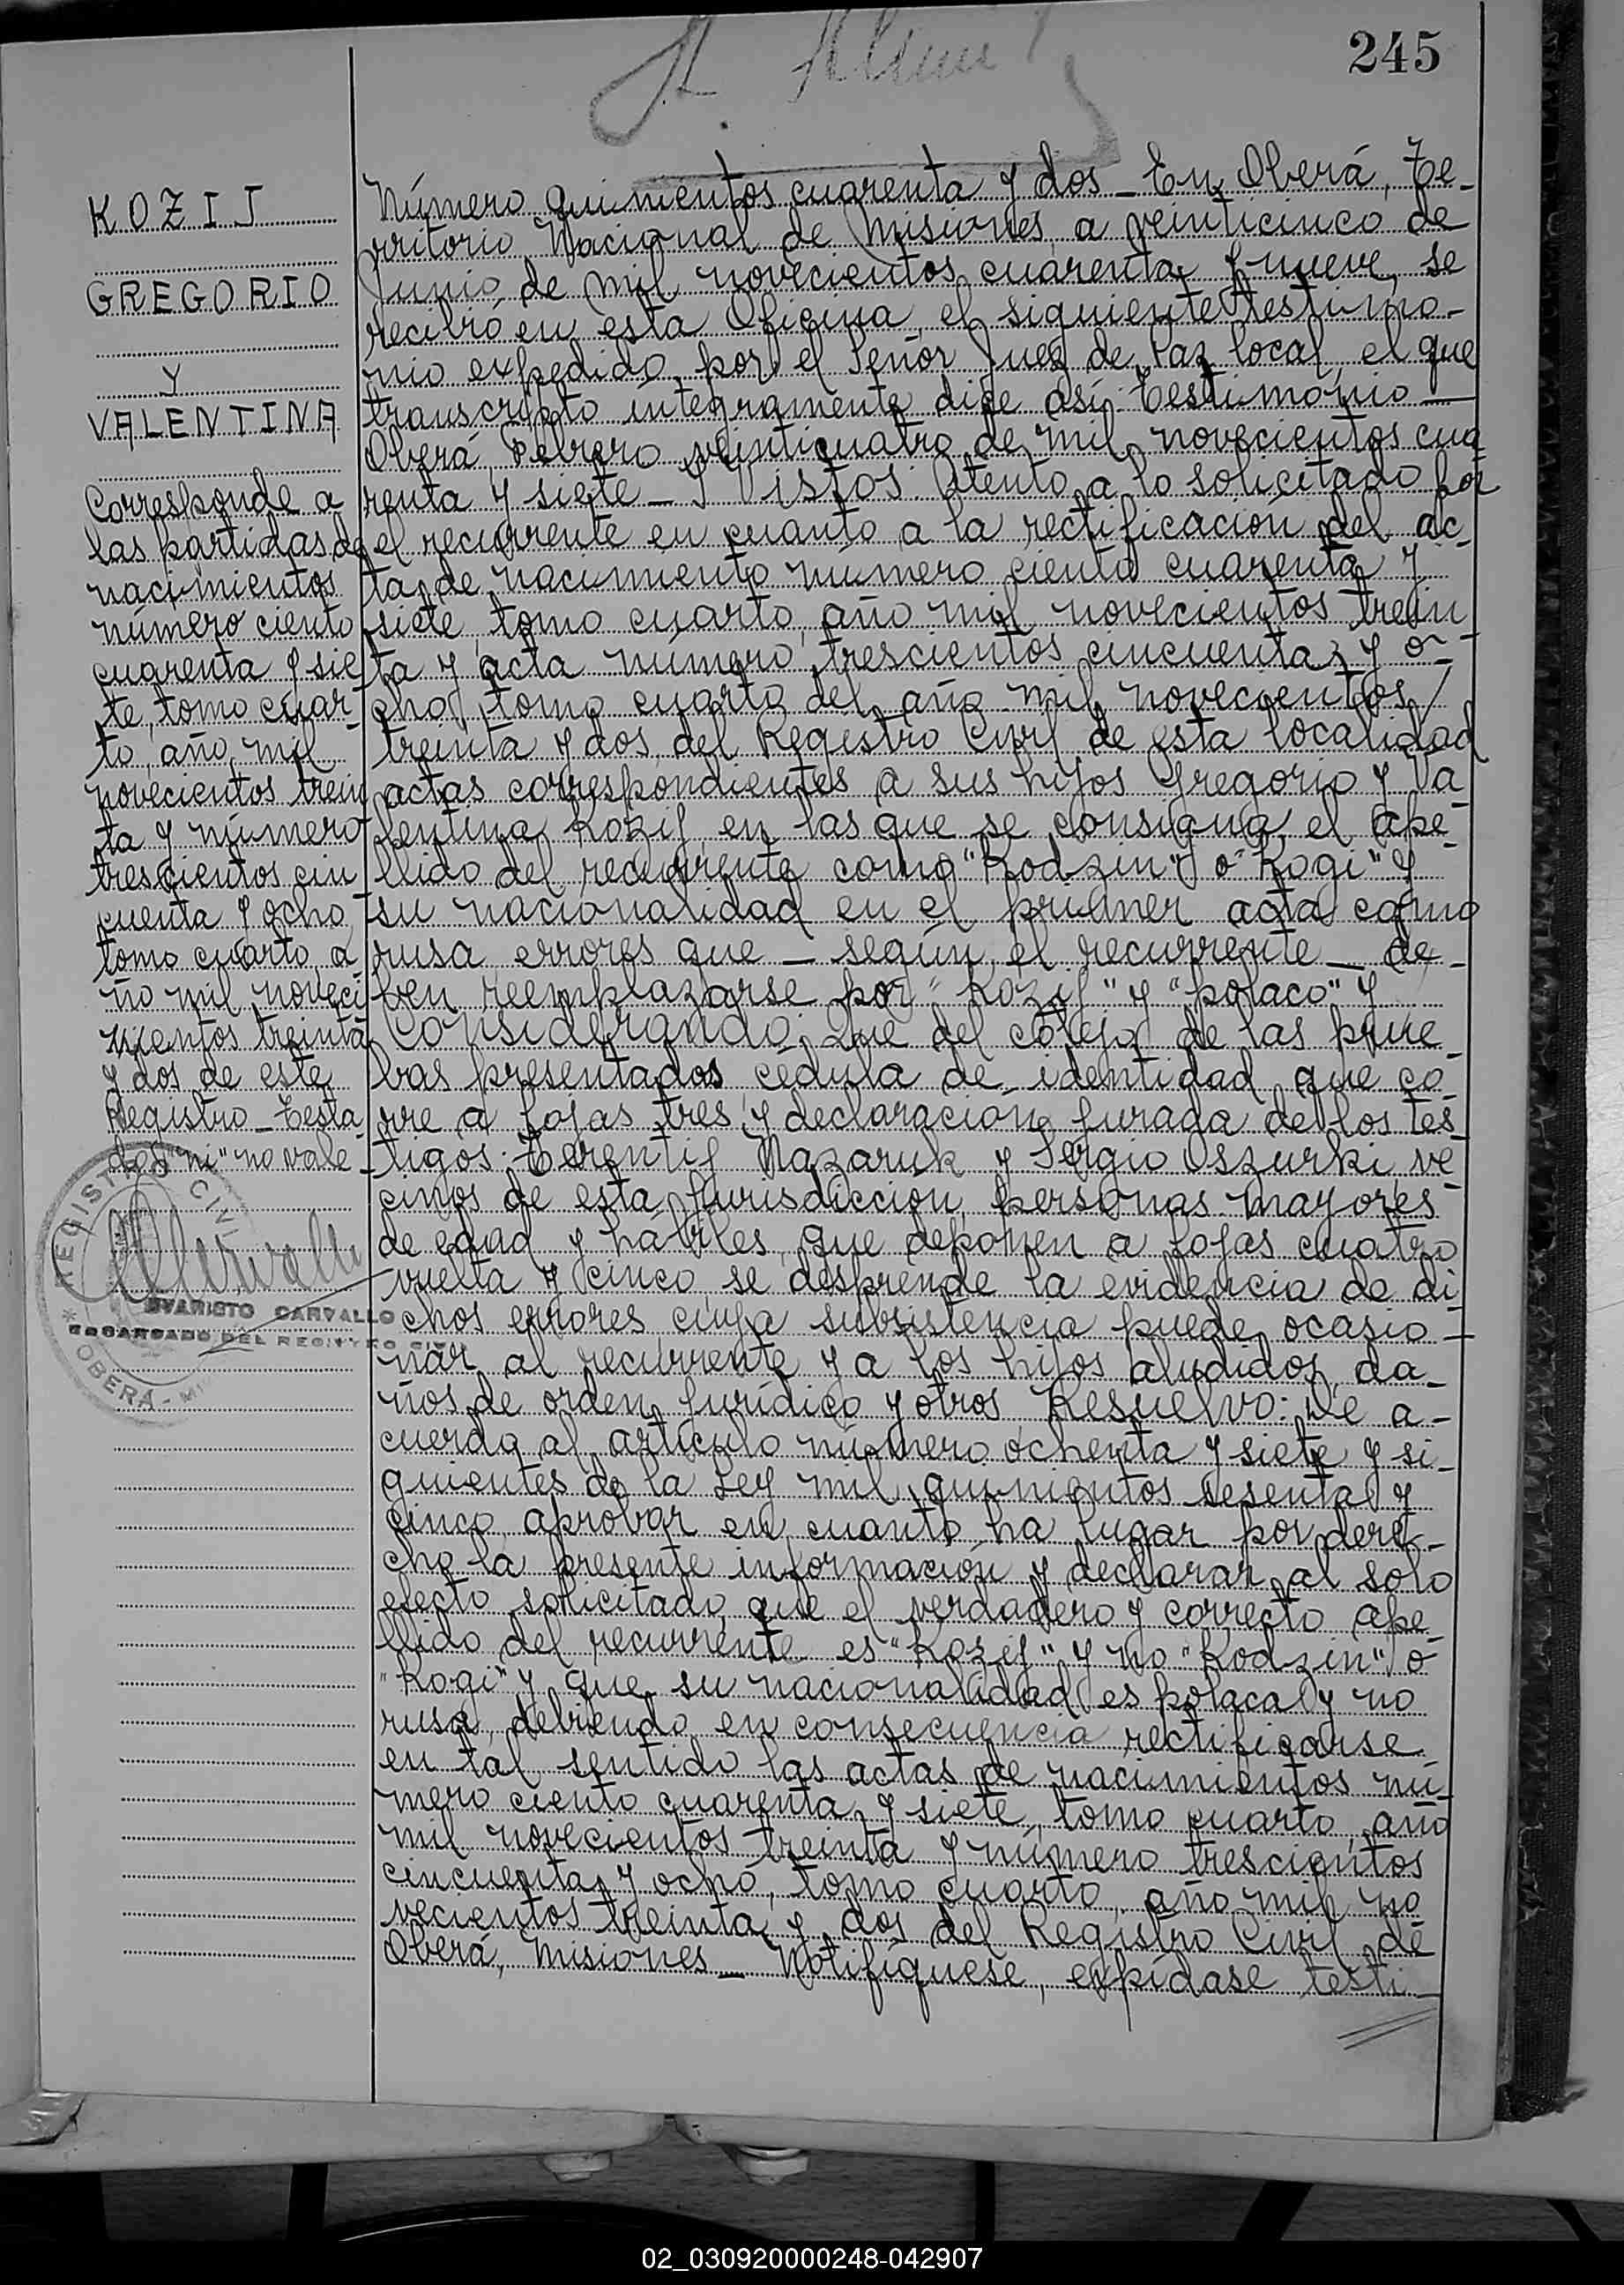 245
KOZIJ
GREGORIO
Y
VALENTINA
Corresponde a
las partidas de
nacimientos
número ciento
cuarenta y sie
te, tomo cuar-
to, año mil
novecientos trein
ta y número
trescientos cin
cuenta y ocho,
tomo cuarto, a
ño mil noveci
nientos treinta
y dos de este
Registro_Testa
do: "ni" no vale_
REGISTRO CIVIL
EVARISTO CARVALLO
ENCARGADO DEL REGISTRO CIVIL
OBERÁ - 
Número quinientos cuarenta y dos_En Oberá, Te-
rritorio Nacional de Misiones, a veinticinco de
Junio de mil novecientos cuarenta y nueve, se
recibió en esta Oficina, el siguiente testimo-
nio expedido por el Señor Juez de Paz local, el que
transcripto integramente dice así: Testimonio_
Oberá, Febrero veinticuatro de mil novecientos cua
renta y siete_Y Vistos: Atento a lo solicitado por
el recurrente en cuanto a la rectificación del ac-
ta de nacimiento número ciento cuarenta y
siete, tomo cuarto, año mil novecientos trein
ta y acta número trescientos cincuenta y o-
cho, tomo cuarto del año mil novecientos
treinta y dos, del Registro Civil de esta localidad
actas correspondientes a sus hijos Gregorio y Va-
lentina Kozij, en las que se consigna el ape-
llido del recurrente como "Kodzin" o "Kogi" y
su nacionalidad en el primer acta como
rusa errores que_según el recurrente_de-
ben reemplazarse por "Kozij" y "polaco" y
Considerando: Que del cotejo de las prue_
bas presentados cédula de identidad que co-
rre a fojas tres y declaración jurada de los tes-
tigos: Terentij Nazaruk y Sergio Oszurki, ve-
cinos de esta jurisdicción, personas mayores
de edad y hábiles, que deponen a fojas cuatro
vuelta y cinco, se desprende la evidencia de di
chos errores cuya subsistencia puede ocasio-
nar al recurrente y a los hijos aludidos, da-
ños de orden jurídico y otros Resuelvo: De a-
cuerdo al artículo número ochenta y siete y si-
guientes de la Ley mil quinientos sesenta y
cinco, aprobar en cuanto ha lugar por dere-
cho la presente información y declarar al solo
efecto solicitado, que el verdadero y correcto ape-
llido del recurrente es "Kozij" y no "Kodzin" o
"Kogi" y que su nacionalidad es polaca y no
rusa, debiendo en consecuencia rectificarse
en tal sentido las actas de nacimientos nú-
mero ciento cuarenta y siete, tomo cuarto, año
mil novecientos treinta y número trescientos
cincuenta y ocho, tomo cuarto, año mil no
vecientos treinta y dos del Registro Civil de
Oberá, Misiones_Notifíquese, expídase testi_
02_030920000248-042907